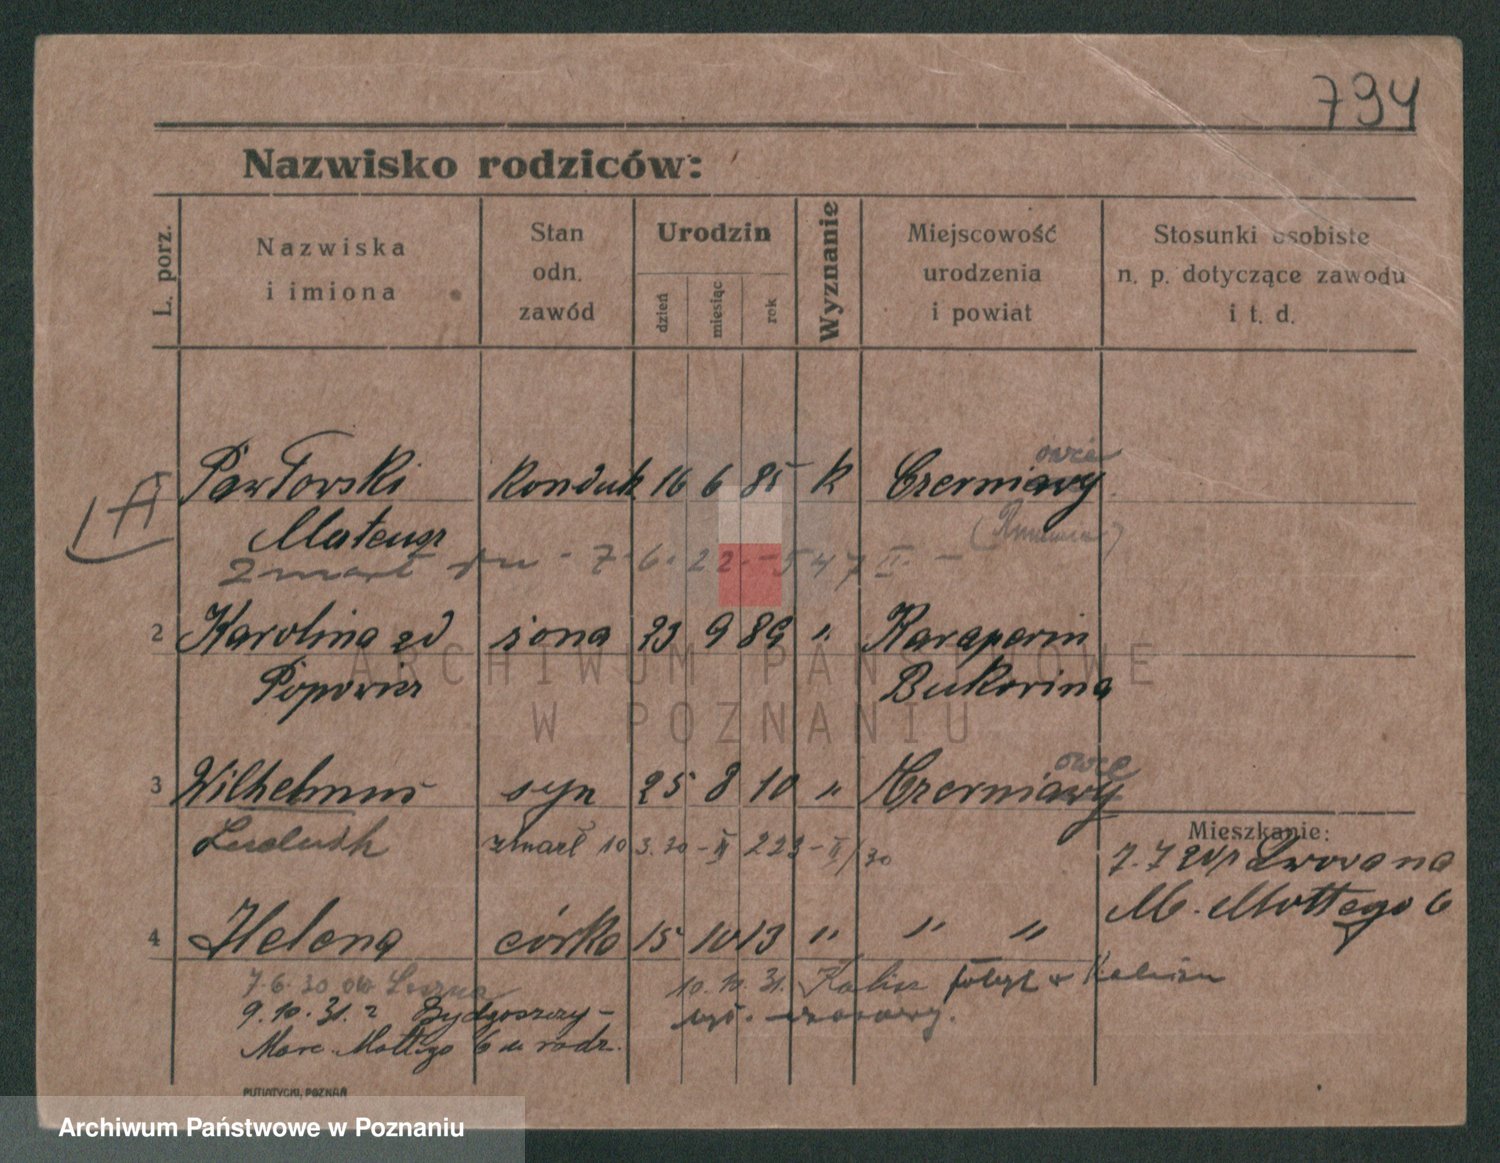 794
Nazwisko rodziców:
L. porz.
Nazwiska
i imiona
Stan
odn.
zawód
Urodzin
dzień
miesiąc
rok
Wyznanie
Miejscowość
urodzenia
i powiat
Stosunki osobiste
n. p. dotyczące zawodu
i t. d.
Pawłowski Konduk 16 6 85 k Czerniawy
owce
Mateusz
zmarł dn - 7.6.22. - 547 II. -
2 Karolina zd żona 23 9 89 " Karaperin
Popowicz Bukowina
ARCHIWUM PAŃSTWOWE
W POZNANIU
3 Wilhelmus syn 25 8 10 " Czerniawy
owce
Ludwik zmarł 10 3.30 - II 223 - II/30
Mieszkanie:
7.7 Lwowa na
M. Mottego 6
4 Helena córka 15 10 13 " " "
7.6.30 Leszna
10.10.31. Kalisz pobyt w
9.10.31. z Bydgoszczy -
Marc. Mottego 6 u rodz.
PUTIATYCKI, POZNAŃ
Archiwum Państwowe w Poznaniu